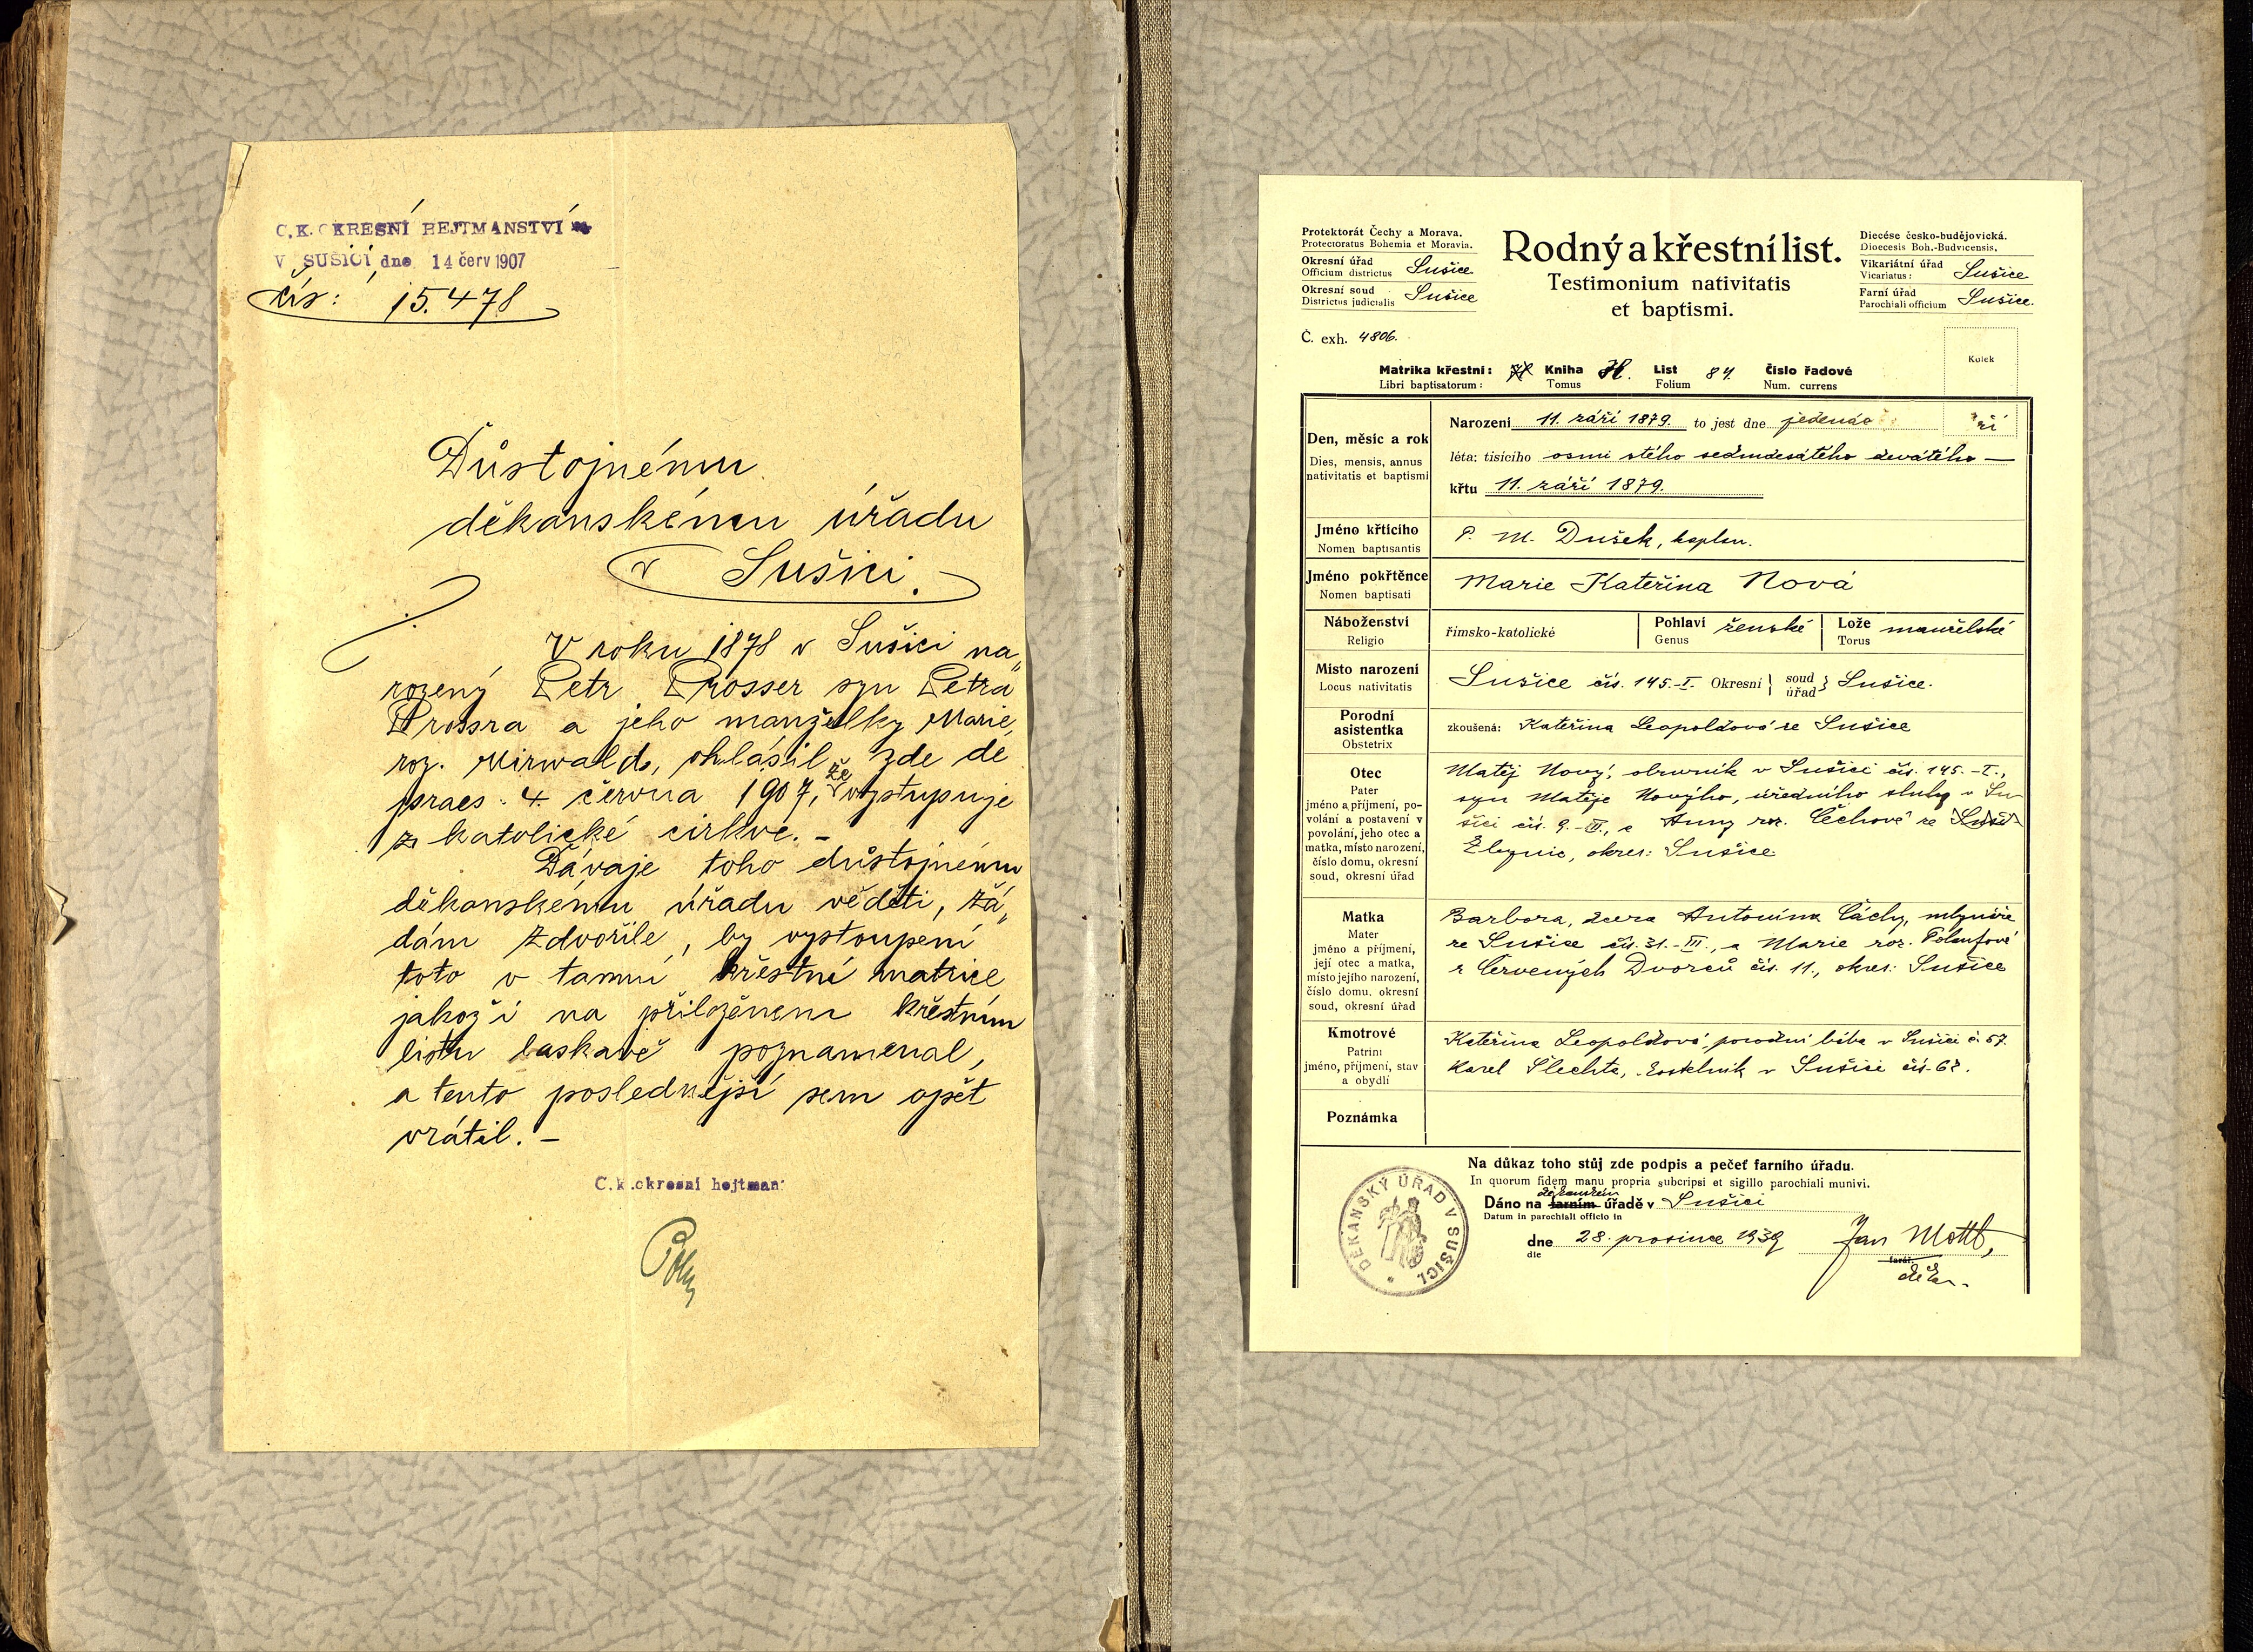 C.K. OKRESNÍ HEJTMANSTVÍ
V SUŠICI, dne 14 červ 1907
čís: 15.478
Důstojnému
děkanskému úřadu
v Sušici.
V roku 1878 v Sušici na„
rozený Petr Prosser syn Petra
Prossra a jeho manželky Marie,
roz. Mirwald, ohlásil zde de
praes. 4. června 1907, že vystupuje
z katolické církve. –
Dávaje toho důstojnému
děkanskému úřadu věděti, žá„
dám zdvořile, by vystoupení
toto v tamní křestní matrice
jakož i na přiloženém křestním
listu laskavě poznamenal,
a tento poslednější sem opět
vrátil. –
C.k.okresní hejtman:
Protektorát Čechy a Morava.
Protectoratus Bohemia et Moravia.
Okresní úřad
Officium districtus Sušice
Okresní soud
Districtus judicialis Sušice
Rodný a křestní list.
Testimonium nativitatis
et baptismi.
Diecése česko-budějovická.
Dioecesis Boh.-Budvicensis.
Vikariátní úřad
Vicariatus: Sušice
Farní úřad
Parochiali officium Sušice.
Č. exh. 4806.
Kolek
Matrika křestní: Kniha H. List 84. Číslo řadové
Libri baptisatorum: Tomus Folium Num. currens
Den, měsíc a rok
Dies, mensis, annus
nativitatis et baptismi
Narození 11. září 1879. to jest dne jedenác ří
léta: tisícího osmi stého sedmdesátého devátého —
křtu 11. září 1879.
Jméno křtícího
Nomen baptisantis
P. M. Dušek, kaplan.
Jméno pokřtěnce
Nomen baptisati
Marie Kateřina Nová
Náboženství
Religio
římsko-katolické
Pohlaví
Genus
ženské
Lože
Torus
manželské
Místo narození
Locus nativitatis
Sušice čís. 145.-I. Okresní } soud úřad } Sušice.
Porodní
asistentka
Obstetrix
zkoušená: Kateřina Leopoldová ze Sušice
Otec
Pater
jméno a příjmení, po-
volání a postavení v
povolání, jeho otec a
matka, místo narození,
číslo domu, okresní
soud, okresní úřad
Matěj Nový, obuvník v Sušici čís. 145.-I.,
syn Matěje Nového, úředního sluhy v Su-
šici čís. 9.-III., a Anny roz. Čechové ze
Zbynic, okres: Sušice
Matka
Mater
jméno a příjmení,
její otec a matka,
místo jejího narození,
číslo domu, okresní
soud, okresní úřad
Barbora, dcera Antonína Cáchy, mlynáře
ze Sušice čís. 31.-III., a Marie roz.
z Červených Dvorců čís. 11., okres: Sušice
Kmotrové
Patrini
jméno, příjmení, stav
a obydlí
Kateřina Leopoldová, porodní bába v Sušici č. 57.
Karel Šlechta, v Sušici čís. 62.
Poznámka
Na důkaz toho stůj zde podpis a pečeť farního úřadu.
In quorum fidem manu propria subcripsi et sigillo parochiali munivi.
děkanském
Dáno na farním úřadě v Sušici
Datum in parochiali officio in
dne 28. prosince 1939 Jan Mottl,
die
farář.
děkan.
DĚKANSKÝ ÚŘAD V SUŠICI